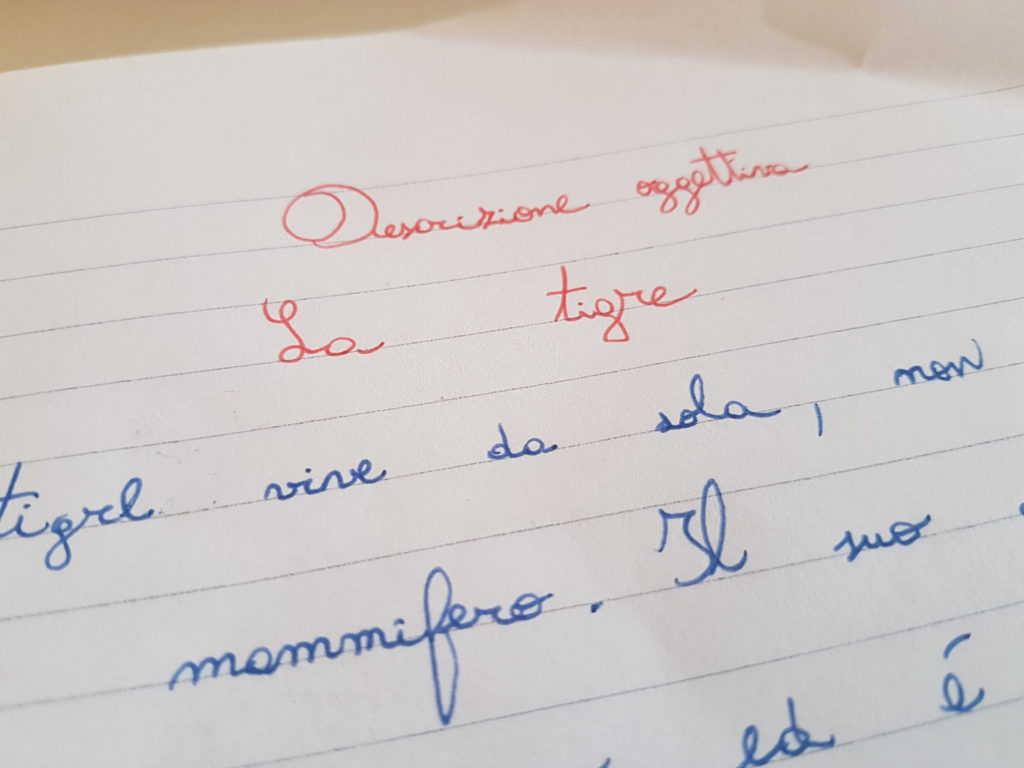 Descrizione oggettiva
La tigre
tigre vive da sola, non
mammifero. Il suo
ed è